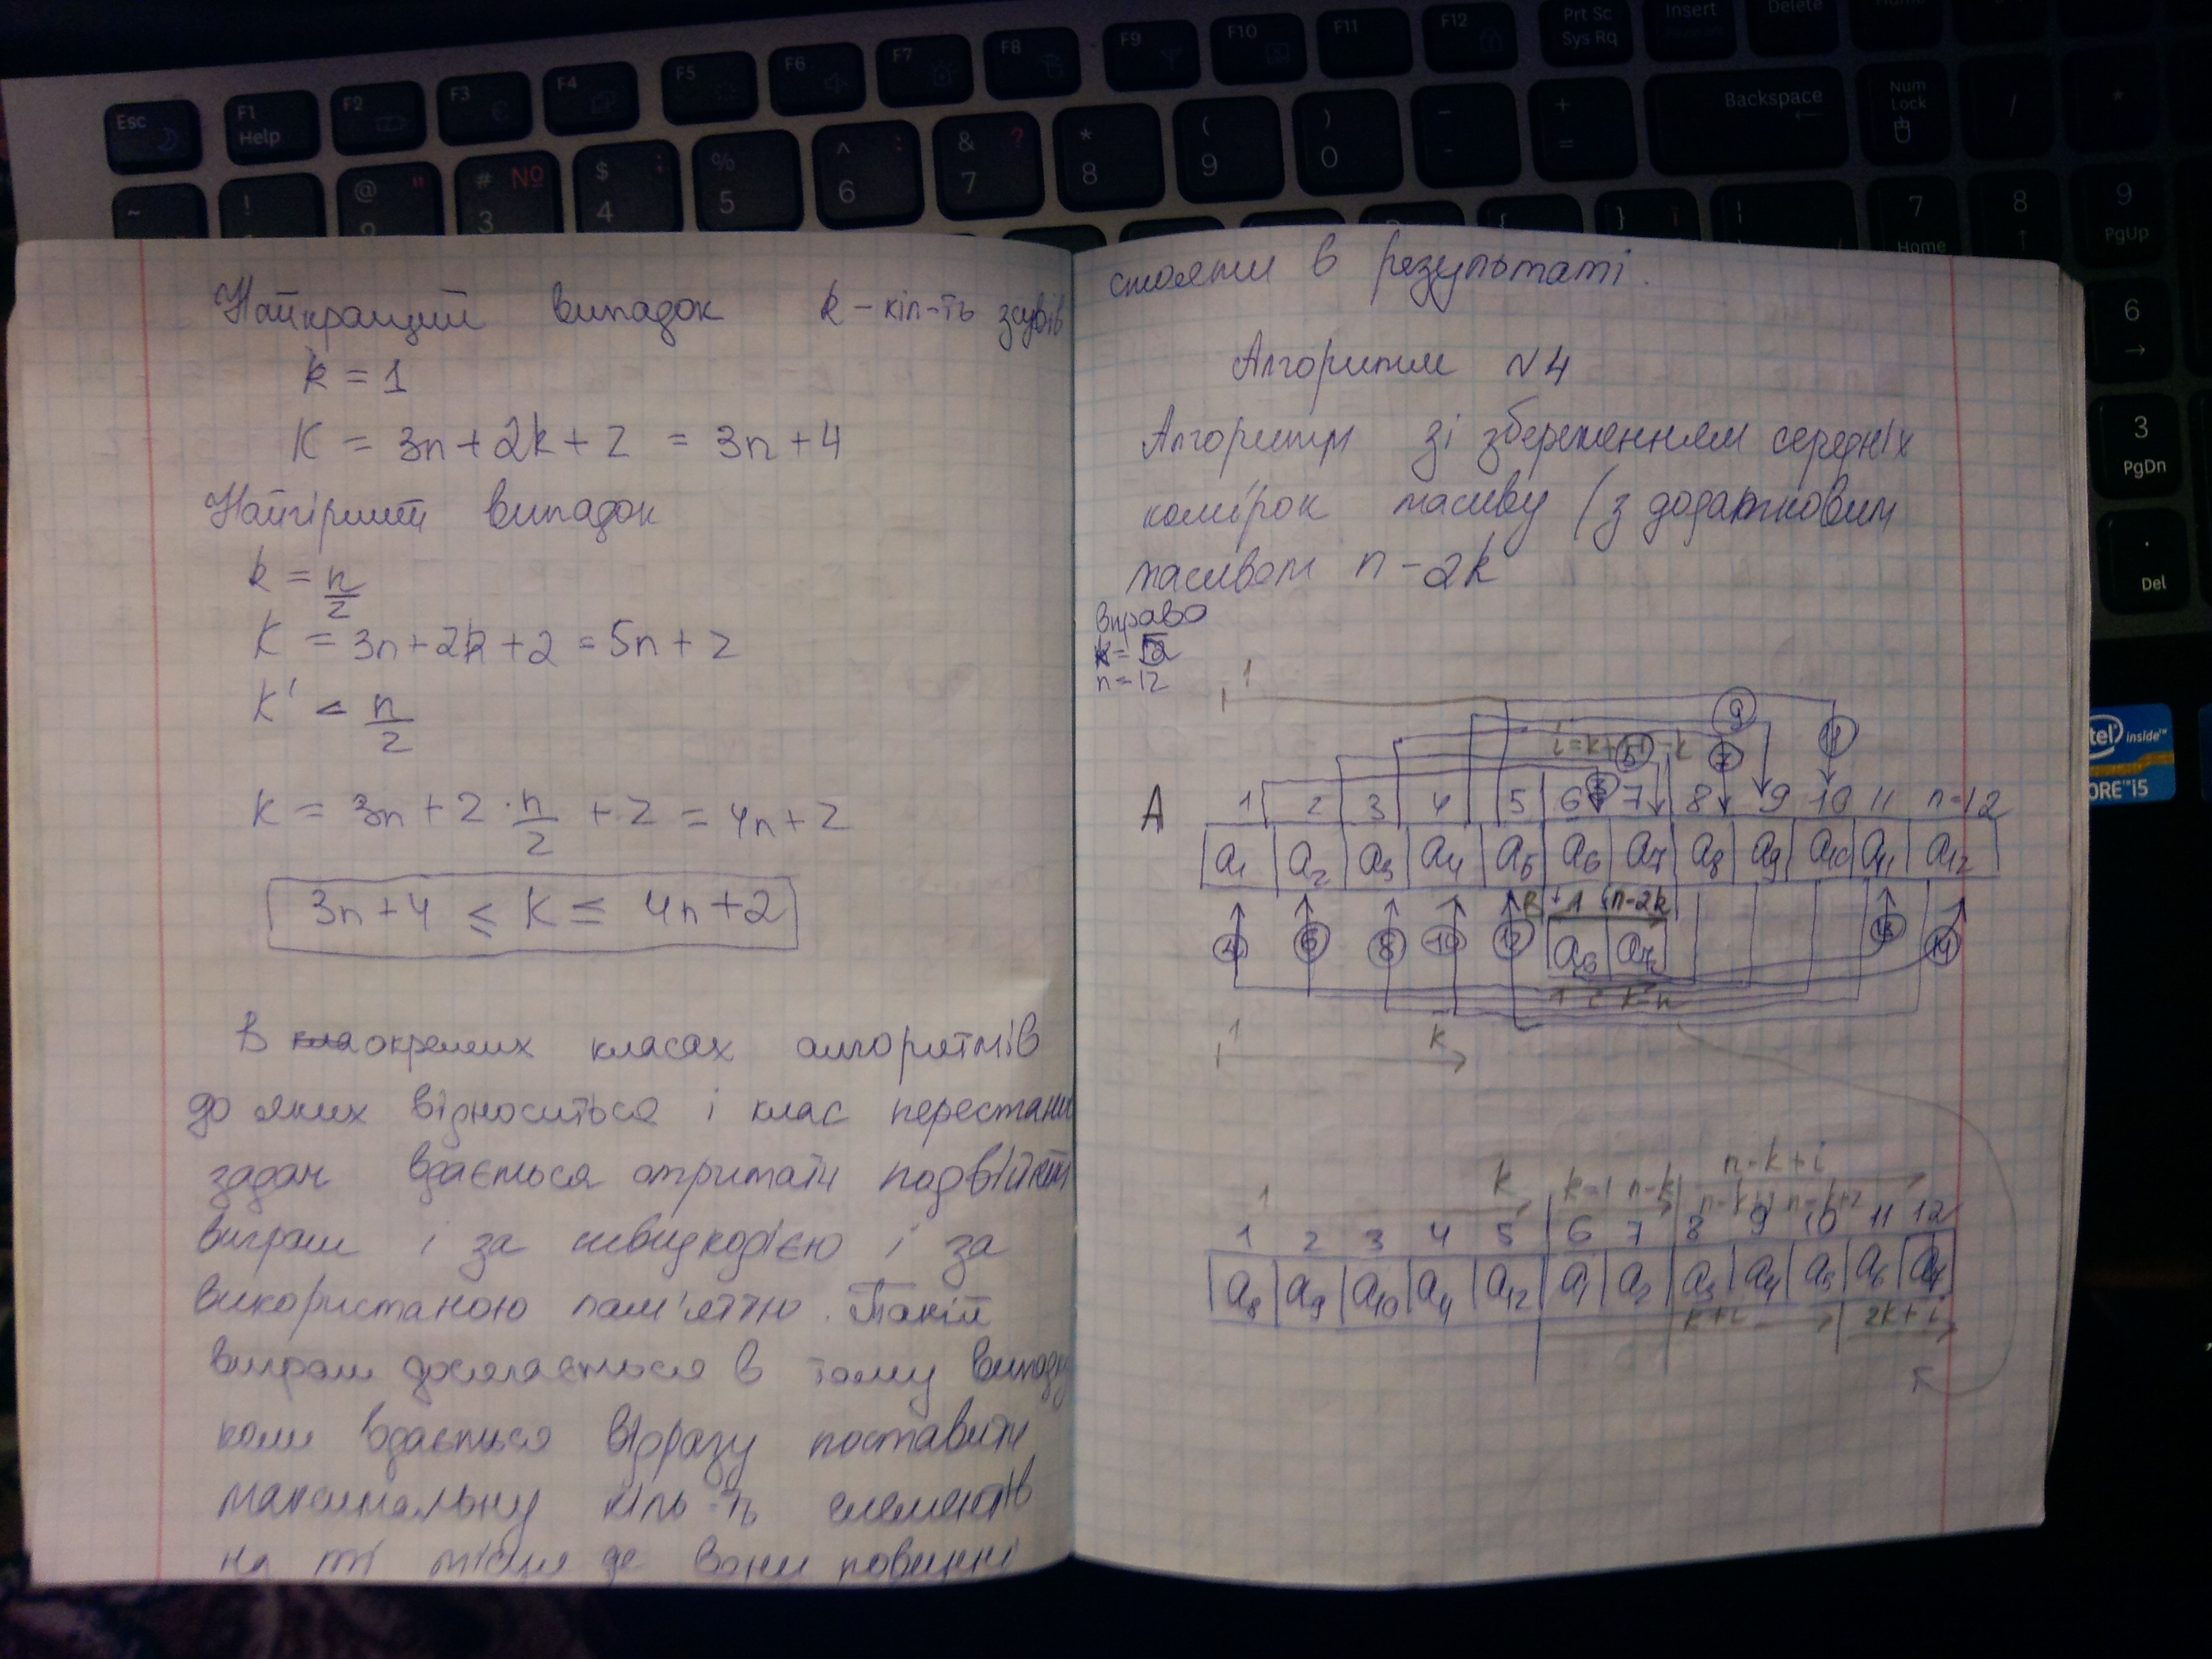 Esc F1 Help F2 F3 F4 F5 F6 F7 F8 F9 F10 F11 F12 Prt Sc Sys Rq Insert Delete
Backspace Num Lock
7 Home 8 9 PgUp
6
3 PgDn
. Del
intel inside™
CORE™i5
Найкращий випадок k - кіл-ть зсувів
k = 1
K = 3n + 2k + 2 = 3n + 4
Найгірший випадок
k = n/2
K = 3n + 2k + 2 = 5n + 2
K' = n/2
K = 3n + 2 · n/2 + 2 = 4n + 2
3n + 4 ≤ K ≤ 4n + 2
В окремих класах алгоритмів
до яких відноситься і клас перестанов
задач вдається отримати подвійний
виграш і за швидкодією і за
використаною пам'яттю. Такий
виграш досягається в тому випадку
коли вдається відразу поставити
максимальну кіль-ть елементів
на ті місця де вони повинні
стояти в результаті.
Алгоритм N4
Алгоритм зі збереженням середніх
комірок масиву (з додатковим
масивом n - 2k
вправо
k = 5
n = 12
1
A 1 2 3 4 5 6 7 8 9 10 11 n=12
a1 a2 a3 a4 a5 a6 a7 a8 a9 a10 a11 a12
1 n-2k
4 6 8 10 12 a6 a7 13 14
1 k
n-k+i
1 k n-k n-k+1 n-k+2
1 2 3 4 5 6 7 8 9 10 11 12
a8 a9 a10 a11 a12 a1 a2 a3 a4 a5 a6 a7
k+i 2k+i